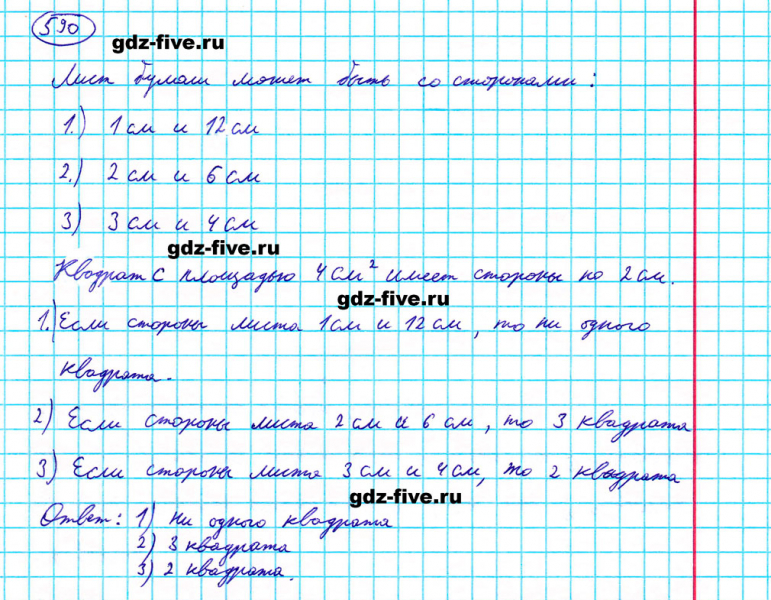 590
gdz-five.ru
Лист бумаги может быть со сторонами:
1.) 1 см и 12 см
2.) 2 см и 6 см
3) 3 см и 4 см
gdz-five.ru
Квадрат с площадью 4 см² имеет стороны по 2 см.
gdz-five.ru
1.) Если стороны листа 1 см и 12 см, то ни одного
квадрата.
2) Если стороны листа 2 см и 6 см, то 3 квадрата
3) Если стороны листа 3 см и 4 см, то 2 квадрата
gdz-five.ru
Ответ: 1) ни одного квадрата
2) 3 квадрата
3) 2 квадрата.